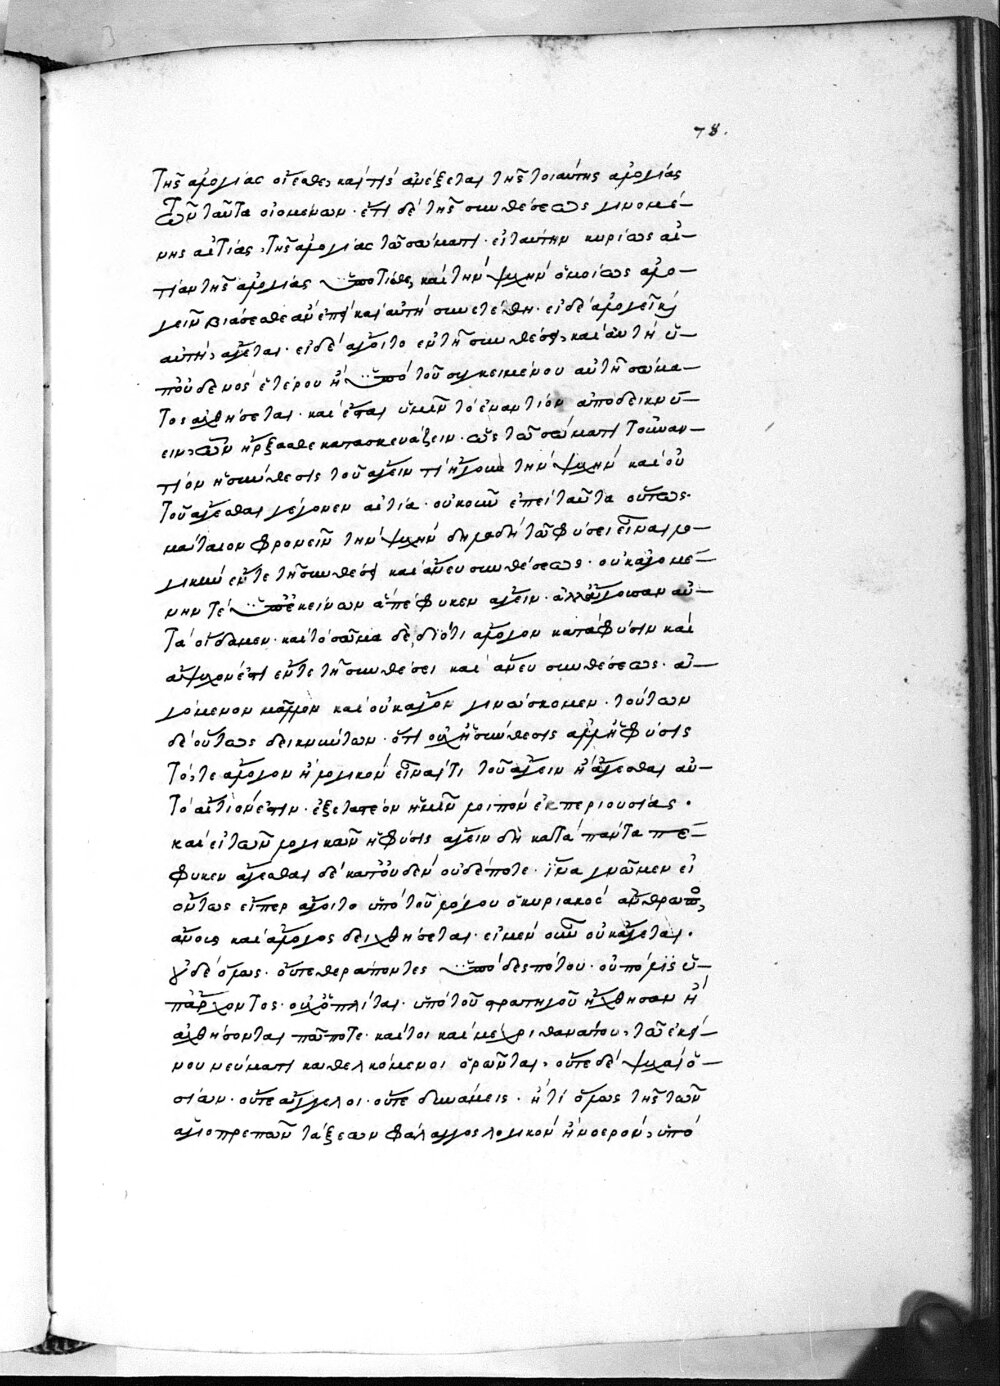 78.
τῆς ἀλογίας οἴεσθε, καὶ τίς ἀνέξεται τῆς τοιαύτης ἀλογίας
τῶν ταῦτα οἰομένων. ἔτι δὲ τῆς συνθέσεως γινομέ-
νης αἰτίας, τῆς ἀλογίας τῷ σώματι. εἰ ταύτην κυρίως αἰ-
τίαν τῆς ἀλογίας ὑποτίθεσθε, καὶ τὴν ψυχὴν ὁμοίως ἀλο-
γεῖν βιάσεσθε ἀνέπὶ καὶ αὐτὴ συνετέθη. εἰ δὲ ἀλογεῖ καὶ
αὐτὴ, ἄγεται. εἰ δὲ ἄγοιτο ἐν τῇ συνθέσει, καὶ αὐτὴ ὑ-
π' οὐδενὸς ἑτέρου ἢ ὑπὸ τοῦ συγκειμένου αὐτῇ σώμα-
τος ἀχθήσεται. καὶ ἔσται ὑμῖν τὸ ἐναντίον ἀποδεικνύ-
ειν, ὧν ἤρξασθε κατασκευάζειν. ὡς τῷ σώματι τοὐναν-
τίον ἡ σύνθεσις τοῦ ἄγειν τι ἤγουν τὴν ψυχήν καὶ οὐ
τοῦ ἄγεσθαι γέγονεν αἰτία. οὐκοῦν ἐπεὶ ταῦτα οὕτως.
μάταιον φρονεῖν τὴν ψυχήν δηλαδὴ τῷ φύσει εἶναι λο-
γικὴν ἔν τε τῇ συνθέσει καὶ ἄνευ συνθέσεως. οὐκ ἀγομέ-
νην τὲ ὑπ' ἐκείνων ἃ πέφυκεν ἄγειν. ἀλλ' ἄγουσαν αὐ-
τὰ οἴδαμεν. καὶ τὸ σῶμα δὲ, διότι ἄλογον κατὰ φύσιν καὶ
ἄψυχόν ἐστι ἔν τε τῇ συνθέσει καὶ ἄνευ συνθέσεως. ἀ-
γόμενον μᾶλλον καὶ οὐκ ἄγον γινώσκομεν. τούτων
δὲ οὕτως δεικνύντων. ὅτι οὐχ ἡ σύνθεσις ἀλλ' ἡ φύσις
τό, τε ἄλογον ἢ λογικὸν εἶναί τι τοῦ ἄγειν ἢ ἄγεσθαι αὐ-
τὸ αἴτιόν ἐστιν. ἐξεταστέον ἡμῖν λοιπὸν ἐκ περιουσίας.
καὶ εἰ τῶν λογικῶν ἡ φύσις ἄγειν δὴ κατὰ πάντα πέ-
φυκεν ἄγεσθαι δὲ κατ' οὐδὲν οὐδέποτε. ἵνα γνῶμεν εἰ
ὄντως εἴπερ ἄγοιτο ὑπὸ τοῦ λόγου ὁ κυριακὸς ἄνθρωπος,
ἄνους καὶ ἄλογος δειχθήσεται. εἰ μὲν οὖν οὐκ ἄγεται.
ὅμως. οὔτε θεράποντες ὑπὸ δεσπότου. οὐ πόλις ὑ-
πάρχοντος. οὐχ ὁπλῖται. ὑπὸ τοῦ στρατηγοῦ ἤχθησαν ἢ
ἀχθήσονται πώποτε. καί τοι καὶ μέχρι θανάτου, τῷ ἐκεί-
νου νεύματι καθελκόμενοι ὁρῶνται, οὔτε δὲ ψυχαὶ ὁ-
σίων. οὔτε ἄγγελοι. οὔτε δυνάμεις. ἤ τι ὅμως τῆς τῶν
ἁγιοπρεπῶν τάξεων φάλαγγος λογικὸν ἢ νοερόν, ὑπὸ